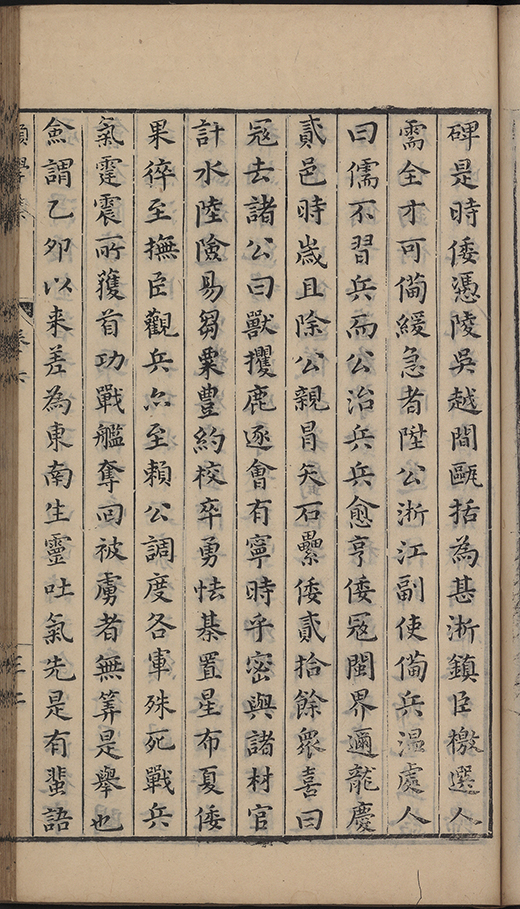 碑是時倭憑陵吳越間甌括為甚淅鎮臣檄選人
需全才可備緩急者陞公淅江副使備兵温處人
曰儒不習兵而公治兵兵愈亨倭寇閩界邇龍慶
貳邑時嵗且除公親冒矢石纍倭貳拾餘衆喜曰
寇去諸公曰獸攫鹿逐會有寧時乎密與諸材官
計水陸險易芻粟豊約校卒勇怯棊置星布夏倭
果猝至撫臣觀兵亦至賴公調度各軍殊死戰兵
氣霆震所獲首功戰艦奪回被虜者無筭是舉也
僉謂乙夘以来差為東南生靈吐氣先是有蜚語
卷六